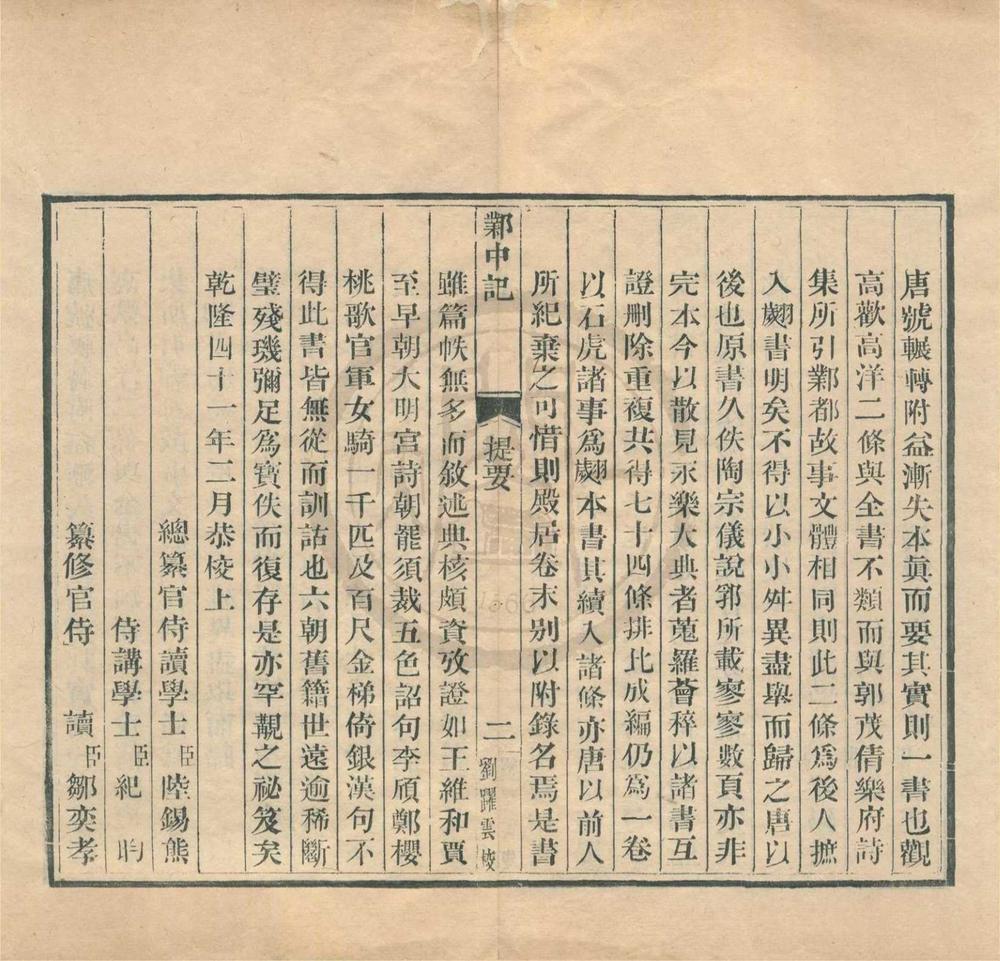 唐號輾轉附益漸失本眞而要其實則一書也觀
高歡高洋二條與全書不類而與郭茂倩樂府詩
集所引鄴都故事文體相同則此二條爲後人摭
入翽書明矣不得以小小舛異盡舉而歸之唐以
後也原書久佚陶宗儀說郛所載寥寥數頁亦非
完本今以散見永樂大典者蒐羅薈稡以諸書互
證刪除重複共得七十四條排比成編仍爲一卷
以石虎諸事爲翽本書其續入諸條亦唐以前人
所紀棄之可惜則殿居卷末别以附錄名焉是書
鄴中記
提要
二
劉躍雲挍
雖篇帙無多而敘述典核頗資攷證如王維和賈
至早朝大明宮詩朝罷須裁五色詔句李頎鄭櫻
桃歌官軍女騎一千匹及百尺金梯倚銀漢句不
得此書皆無從而訓詁也六朝舊籍世遠逾稀斷
璧殘璣彌足爲寶佚而復存是亦罕覯之祕笈矣
乾隆四十一年二月恭校上
總纂官侍讀學士臣陸錫熊
侍講學士臣紀昀
纂修官侍讀臣鄒奕孝